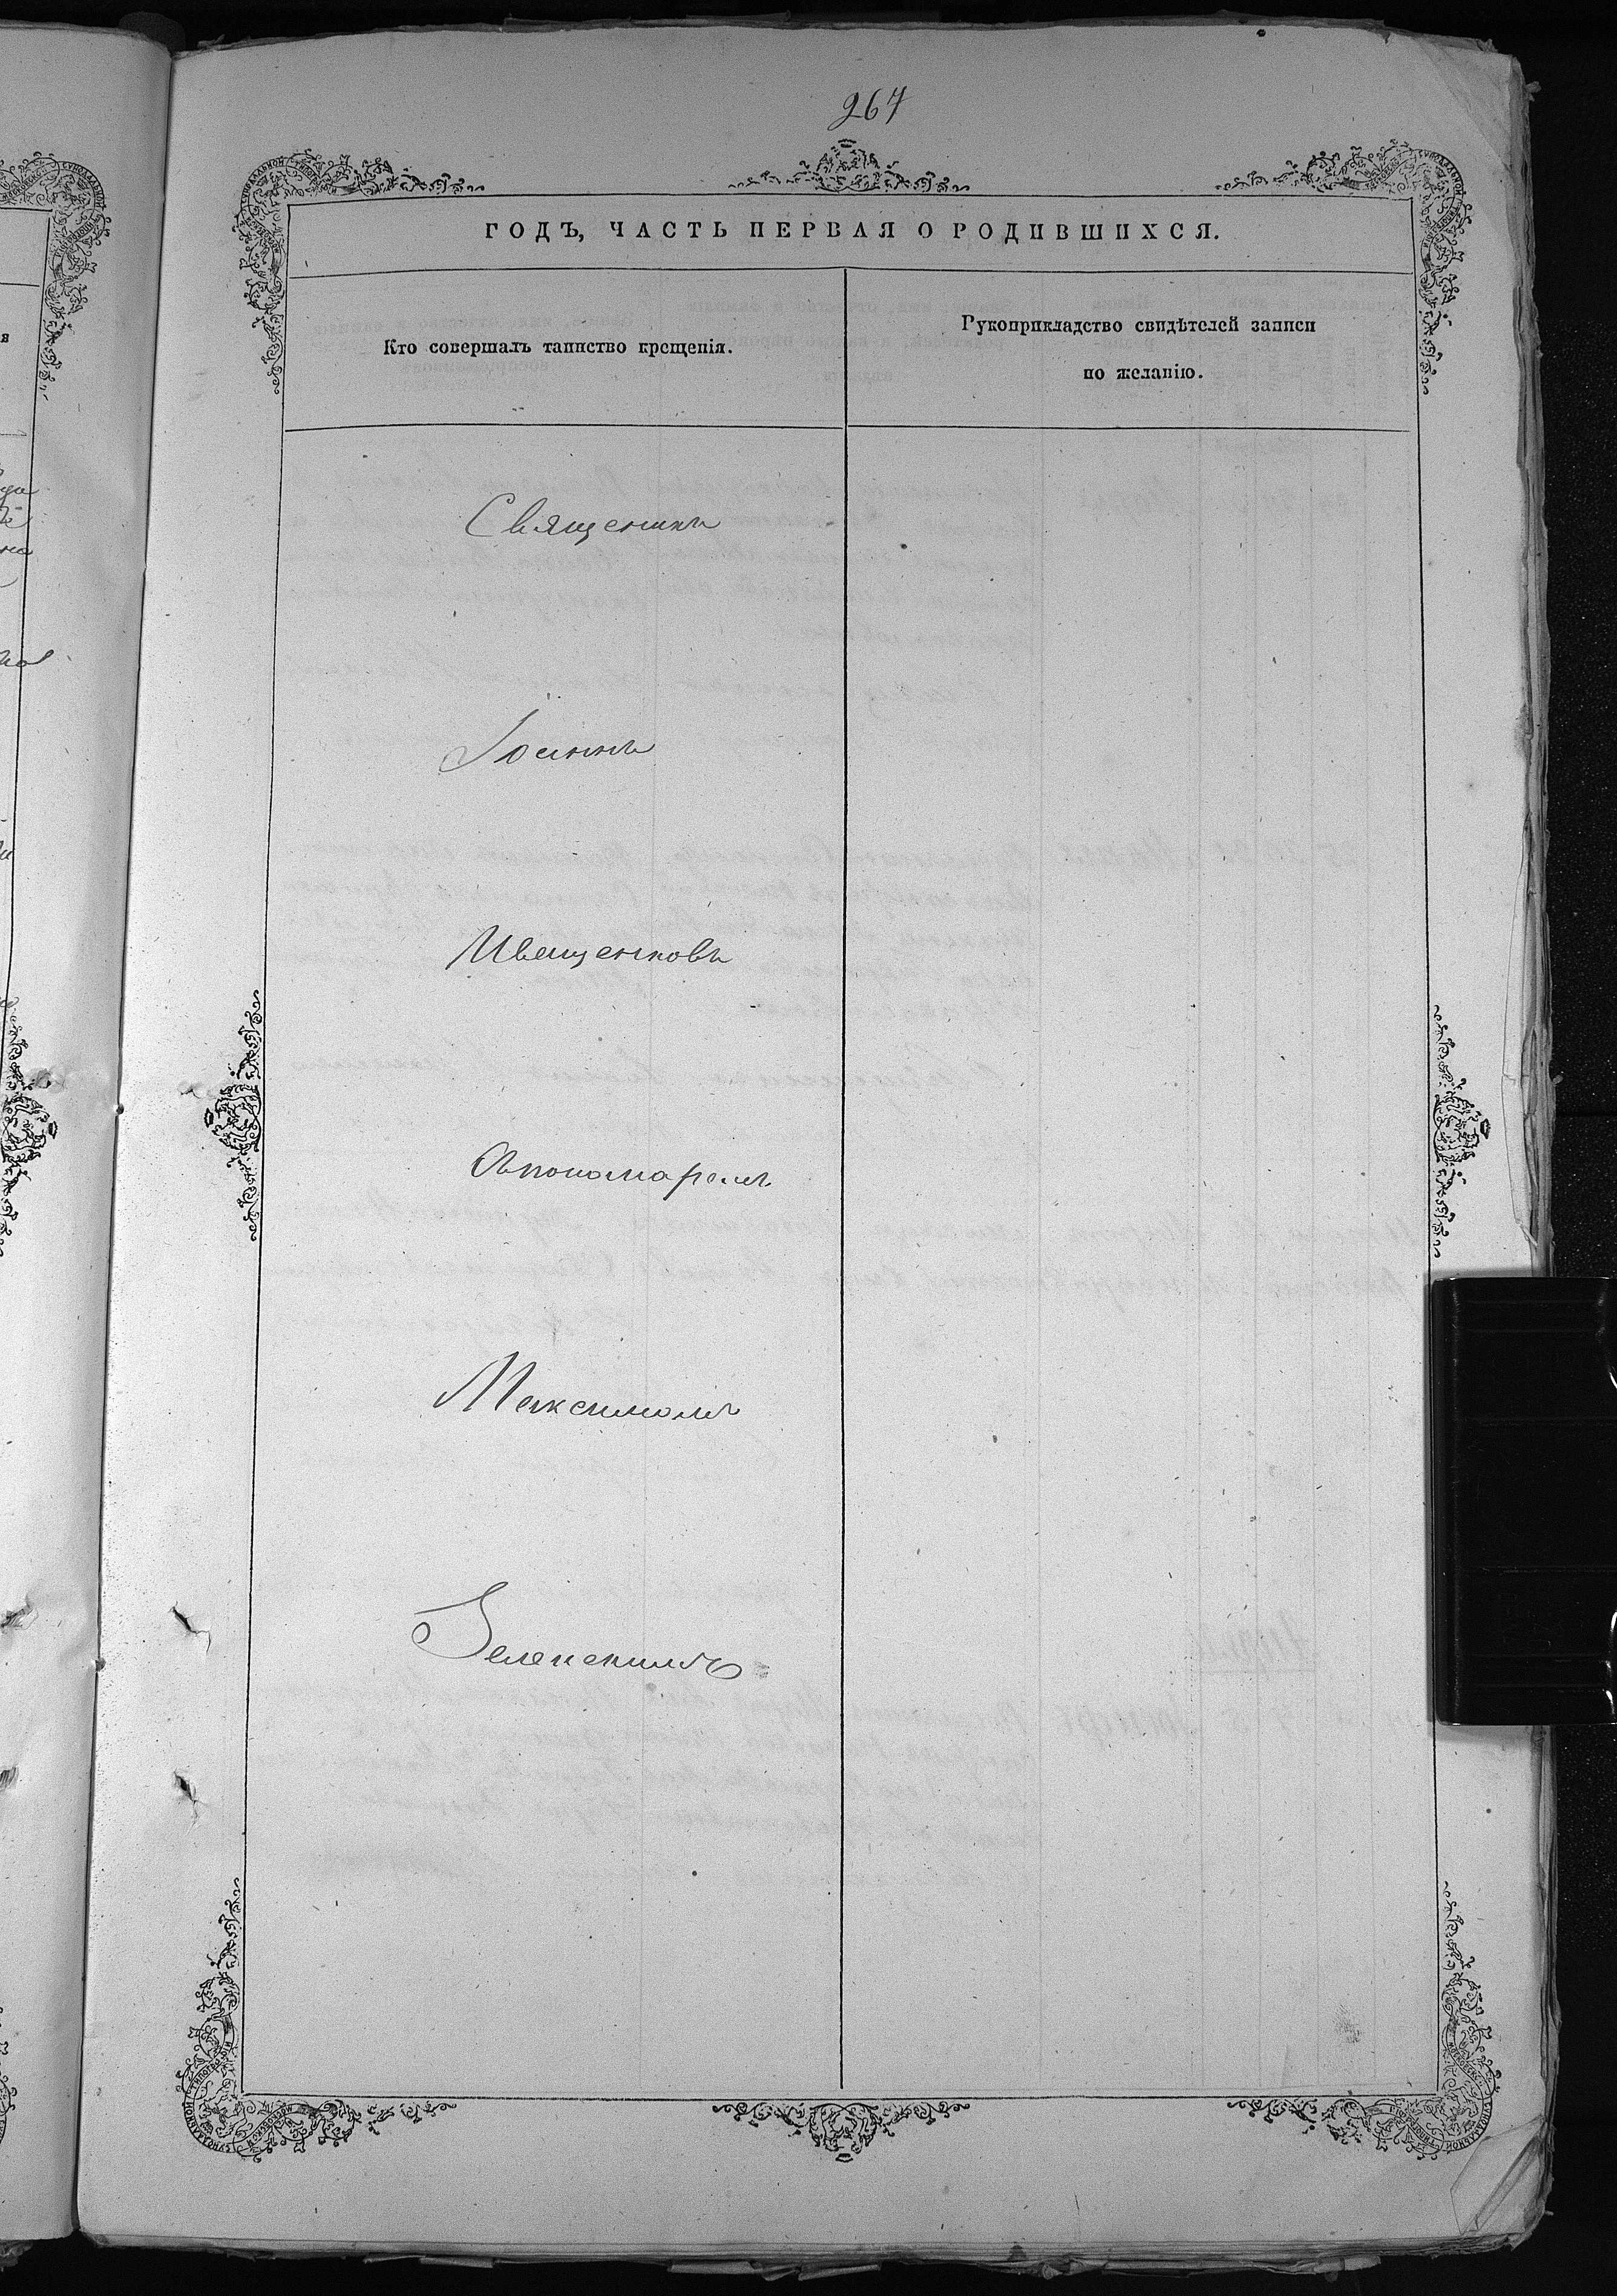 267
ГОДЪ, ЧАСТЬ ПЕРВАЯ О РОДИВШИХСЯ.
Кто совершалъ таинство крещенія.
Рукоприкладство свидѣтелей записи
по желанію.
Священикъ
Іоаннъ
Иващенковъ
Съ пономаремъ
Максимомъ
Зеленскимъ